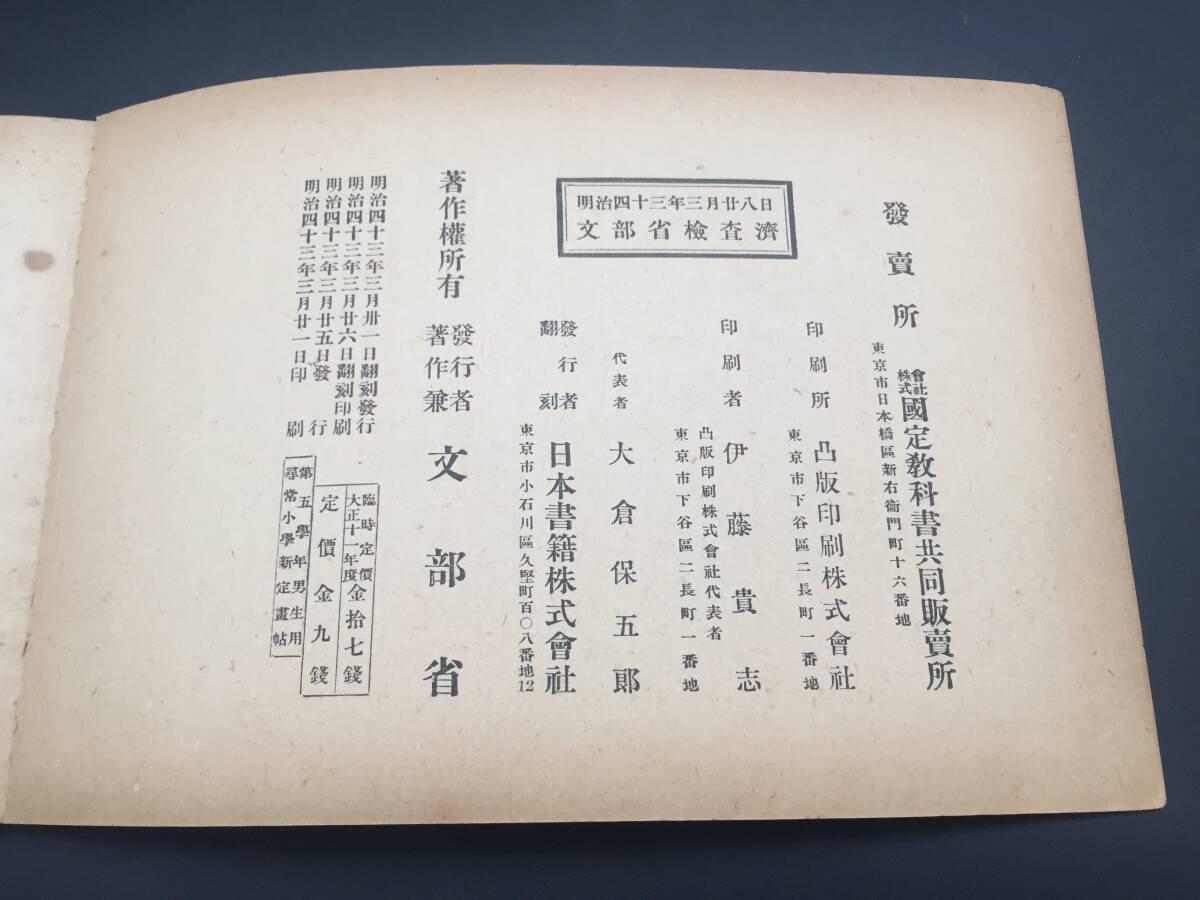 尋常小學新定畫帖
第五學年男生用
明治四十三年三月廿一日印刷
明治四十三年三月廿五日發行
明治四十三年三月廿六日翻刻印刷
明治四十三年三月卅一日翻刻發行
定價金九錢
大正十一年度臨時定價金拾七錢
著作權所有
著作兼發行者 文部省
東京市小石川區久堅町百〇八番地12
翻刻發行者 日本書籍株式會社
代表者 大倉保五郎
明治四十三年三月廿八日
文部省檢査濟
東京市下谷區二長町一番地
凸版印刷株式會社代表者
印刷者 伊藤貴志
東京市下谷區二長町一番地
印刷所 凸版印刷株式會社
東京市日本橋區新右衞門町十六番地
發賣所 株式會社國定敎科書共同販賣所